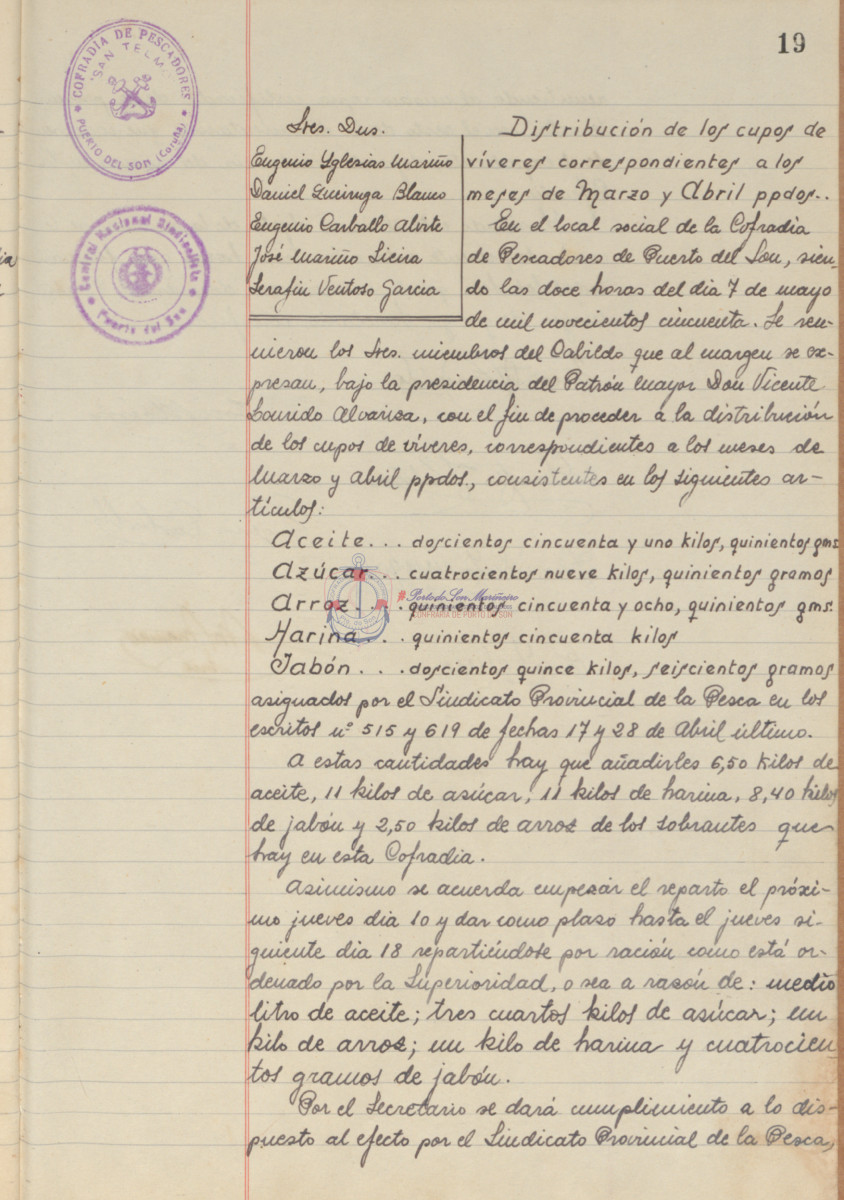 19
COFRADIA DE PESCADORES
"SAN TELMO"
PUERTO DEL SON (Coruña)
Central Nacional Sindicalista
Puerto del Son
Sres. Dus.
Eugenio Yglesias Mariño
Daniel Queiruga Blanco
Eugenio Carballo Alvite
José Mariño Sieira
Serafin Ventoso Garcia
Distribución de los cupos de
víveres correspondientes a los
meses de Marzo y Abril ppdos..
En el local social de la Cofradia
de Pescadores de Puerto del Son, sien-
do las doce horas del dia 7 de mayo
de mil novecientos cincuenta. Se reu-
nieron los Sres. miembros del Cabildo que al margen se ex-
presan, bajo la presidencia del Patrón Mayor Don Vicente
Lourido Alvariza, con el fin de proceder a la distribución
de los cupos de víveres, correspondientes a los meses de
Marzo y Abril ppdos., consistentes en los siguientes ar-
tículos:
Aceite... doscientos cincuenta y uno kilos, quinientos gms.
Azúcar... cuatrocientos nueve kilos, quinientos gramos
Arroz.... quinientos cincuenta y ocho, quinientos gms.
Harina... quinientos cincuenta kilos
Jabón.... doscientos quince kilos, seiscientos gramos
# Porto do Son Mariñeiro
CONFRARÍA DE PORTO DO SON
asignados por el Sindicato Provincial de la Pesca en los
escritos nº 515 y 619 de fechas 17 y 28 de Abril último.
A estas cantidades hay que añadirles 6,50 kilos de
aceite, 11 kilos de azúcar, 11 kilos de harina, 8,40 kilos
de jabón y 2,50 kilos de arroz de los sobrantes que
hay en esta Cofradia.
Asimismo se acuerda empezar el reparto el próxi-
mo jueves dia 10 y dar como plazo hasta el jueves si-
guiente dia 18 repartiéndose por ración como está or-
denado por la Superioridad, o sea a razón de: medio
litro de aceite; tres cuartos kilos de azúcar; un
kilo de arroz; un kilo de harina y cuatrocien-
tos gramos de jabón.
Por el Secretario se dará cumplimiento a lo dis-
puesto al efecto por el Sindicato Provincial de la Pesca,